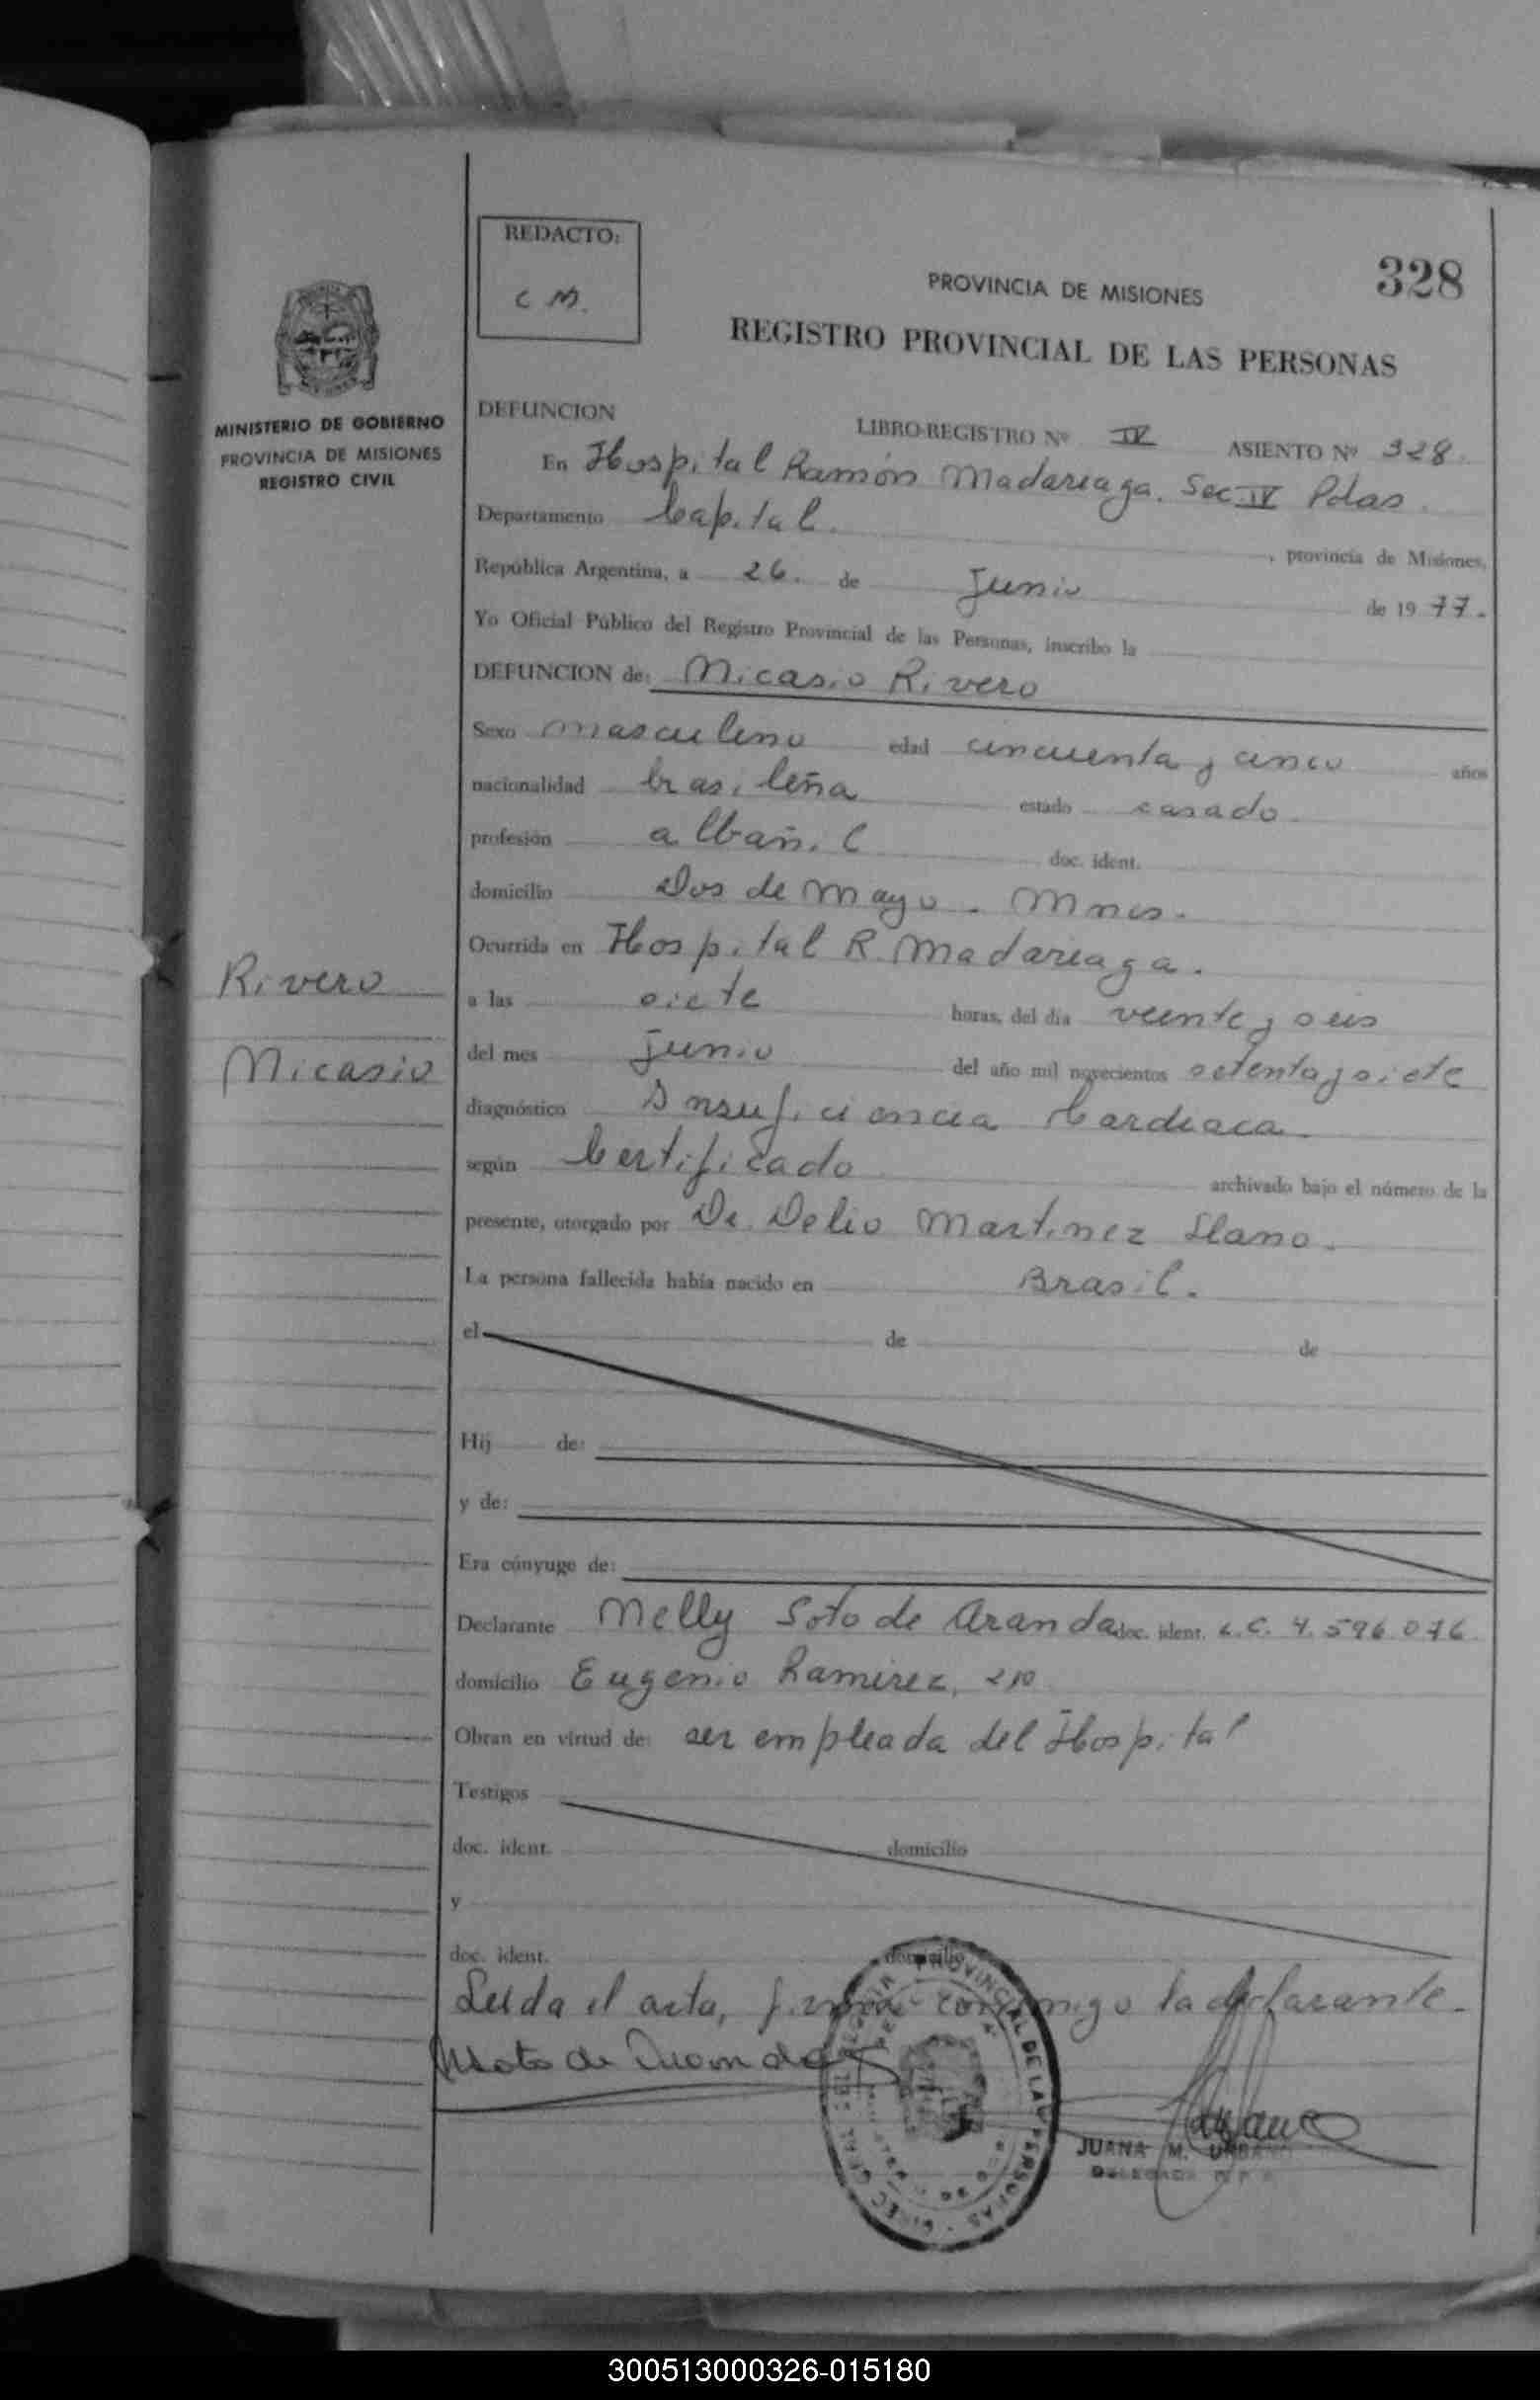 REDACTO:
C M.
328
PROVINCIA DE MISIONES
REGISTRO PROVINCIAL DE LAS PERSONAS
MINISTERIO DE GOBIERNO
PROVINCIA DE MISIONES
REGISTRO CIVIL
DEFUNCION
LIBRO-REGISTRO Nº IV ASIENTO Nº 328
En Hospital Ramón Madariaga. Sec. IV Pdas.
Departamento Capital. , provincia de Misiones,
República Argentina, a 26. de Junio de 1977.
Yo Oficial Público del Registro Provincial de las Personas, inscribo la
DEFUNCION de: Nicasio Rivero
Sexo masculino edad cincuenta y cinco años
nacionalidad brasileña estado casado
profesión albañil doc. ident.
domicilio Dos de Mayo. Mnes.
Ocurrida en Hospital R. Madariaga.
Rivero
a las siete horas, del día veinte y seis
Nicasio
del mes Junio del año mil novecientos setenta y siete
diagnóstico Insuficiencia Cardiaca
según Certificado archivado bajo el número de la
presente, otorgado por Dr. Delio Martinez Llano.
La persona fallecida había nacido en Brasil.
el de de
Hij de:
y de:
Era cónyuge de:
Declarante Nelly Soto de Aranda doc. ident. L.C. 4.596.076
domicilio Eugenio Ramirez, 210
Obran en virtud de: ser empleada del Hospital
Testigos
doc. ident. domicilio
y
doc. ident. domicilio
Leida el acta, firma conmigo la declarante.
NSoto de Aranda
JUANA M. URBANO
DELEGADA R P
PROVINCIAL DE LAS PERSONAS
300513000326-015180